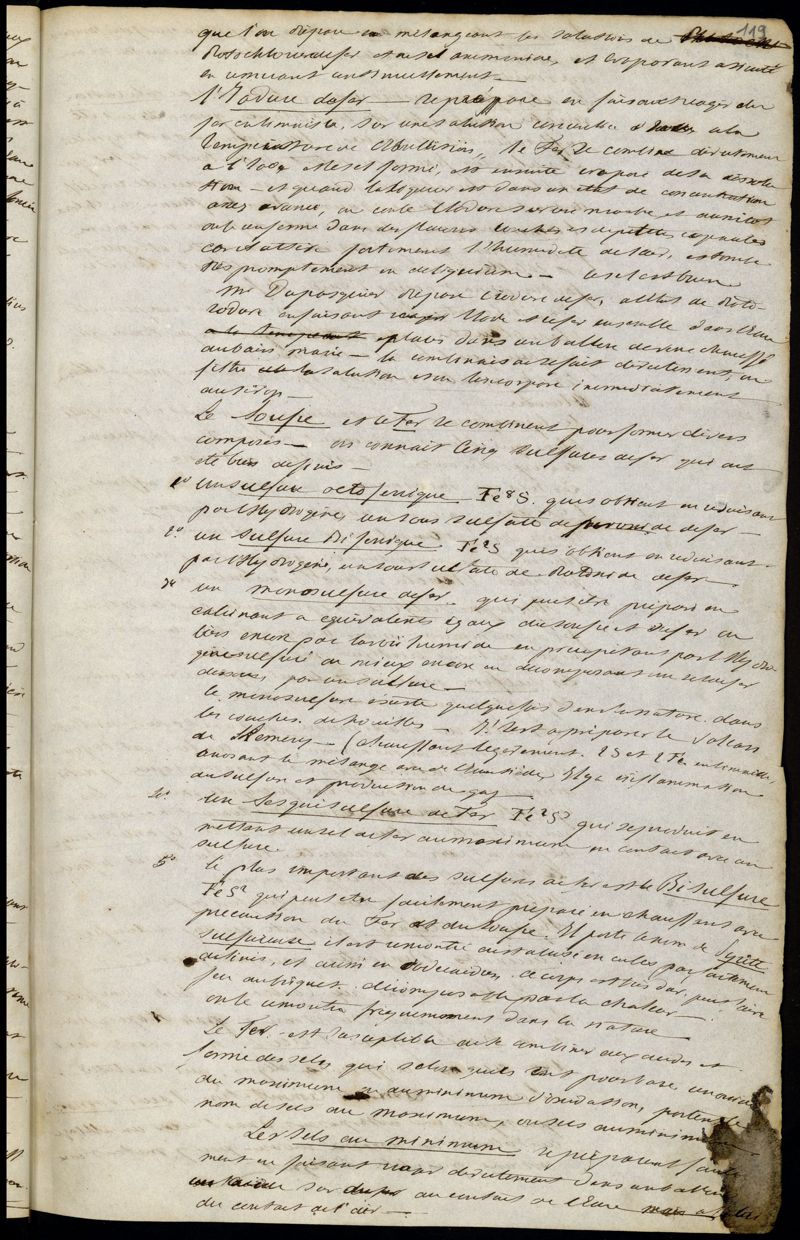 119
que l'on prépare en mélangeant les solutions de
Protochlorure de fer et de sel ammoniac, et évaporant à siccité
en remuant continuellement —
l'Iodure de fer — se prépare en faisant réagir du
fer en limaille, sur une solution d'Iode à la
température de l'Ebullition, le Fer se combine directement
à l'Iode le sel formé, est ensuite évaporé de la dissolu
tion — et quand la liqueur est dans un état de concentration
assez avancé, on coule l'Iodure sur un marbre et aussitôt
on l'enferme dans des flacons
car il attire fortement l'humidité de l'air, et tombe
très promptement en déliquium — le sel est brun
Mr Dupasquier prépare l'iodure de fer, à l'état de Proto-
iodure en faisant réagir l'Iode et le fer ensemble dans l'Eau
placés dans un ballon de verre chauffé
au bain marie — la combinaison se fait directement, on
filtre la solution et on l'incorpore immédiatement
au sirop —
Le Soufre et le Fer se combinent pour former divers
composés — on connait Cinq sulfures de fer qui ont
été bien définis —
1º Un sulfure octoferrique Fe⁸S. qui s'obtient en réduisant
par l'Hydrogène, un sous sulfate de fer —
2º un Sulfure Biferrique Fe²S qui s'obtient en réduisant
par l'Hydrogène, un sous sulfate de Protoxide de fer —
3º un monosulfure de fer. qui peut être préparé en
calcinant à équivalents égaux du soufre et du fer ou
bien encore par la voie humide en précipitant par l'Hydro
gène sulfuré ou mieux encore en décomposant un sel de fer
dessous, par un sulfure —
le monosulfure existe quelquefois dans la nature. dans
les couches de houilles — Il sert à préparer le Volcan
de Lemery — (chauffant légèrement. 2 S et 2 Fe en limaille,
arrosant le mélange avec de l'Eau tiède, Il y a inflammation
du sulfure et production de gaz
4º. Un Sesquisulfure de Fer Fe²S³ qui se produit en
mettant un sel de fer au maximum en contact avec un
sulfure.
5º le plus important des sulfures de fer est le Bisulfure
FeS² qui peut être facilement préparé en chauffant avec
précaution du Fer et du soufre. Il porte le nom de Pyrite
sulfureuse il est rencontré cristallisé en cubes parfaitement
définis, et aussi en dodécaèdre. ce corps est
décomposable par la chaleur —
on le rencontre fréquemment dans la nature
Le Fer. est susceptible de se combiner aux acides et
forme des sels qui selon qu'ils ont pour base, un oxide
du maximum ou au minimum d'oxidation, portent le
nom de sels au maximum, ou sels au minimum
Les sels au minimum se préparent
ment en faisant réagir directement dans un ballon
sur du fer au contact de l'Eau
du contact de l'air —